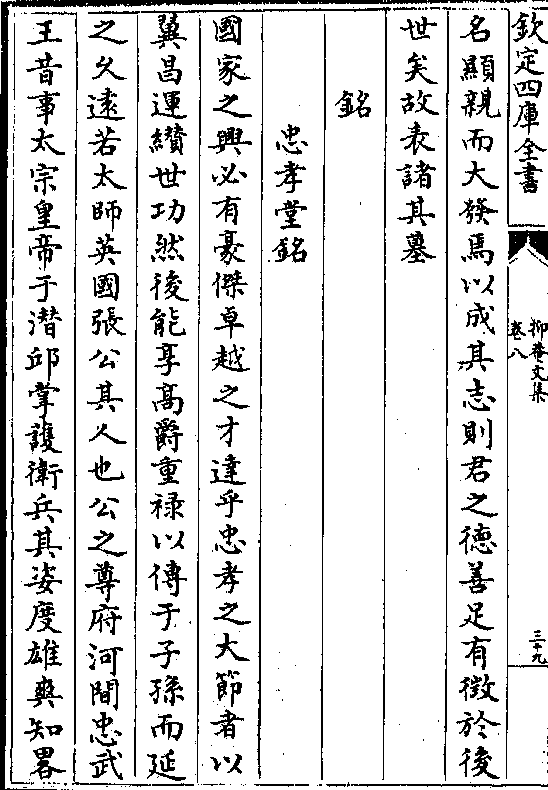 欽定四庫全書
抑菴文集
卷八
三十九
名顯親而大發焉以成其志則君之德善足有徴於後
世矣故表諸其墓
銘
忠孝堂銘
國家之興必有豪傑卓越之才達乎忠孝之大節者以
翼昌運纉世功然後能享髙爵重禄以傳于子孫而延
之久逺若太師英國張公其人也公之尊府河間忠武
王昔事太宗皇帝于潛邸掌䕶衛兵其姿度雄爽知畧